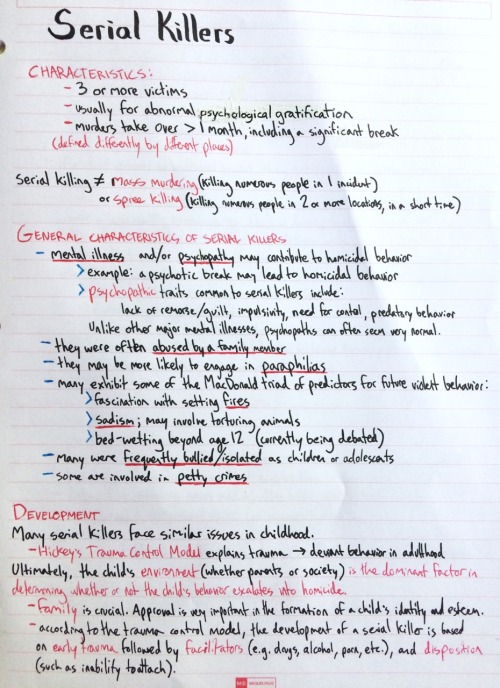 Serial Killers
CHARACTERISTICS:
- 3 or more victims
- usually for abnormal psychological gratification
- murders take over >1 month, including a significant break
(defined differently by different places)
Serial killing ≠ mass murdering (killing numerous people in 1 incident)
or spree killing (killing numerous people in 2 or more locations, in a short time)
GENERAL CHARACTERISTICS OF SERIAL KILLERS
- mental illness and/or psychopathy may contribute to homicidal behavior
> example: a psychotic break may lead to homicidal behavior
> psychopathic traits common to serial killers include:
lack of remorse/guilt, impulsivity, need for control, predatory behavior
Unlike other major mental illnesses, psychopaths can often seem very normal.
- they were often abused by a family member
- they may be more likely to engage in paraphilias
- many exhibit some of the MacDonald triad of predictors for future violent behavior:
> fascination with setting fires
> sadism; may involve torturing animals
> bed-wetting beyond age 12 (currently being debated)
- Many were frequently bullied/isolated as children or adolescents
- some are involved in petty crimes
DEVELOPMENT
Many serial killers face similar issues in childhood.
- Hickey's Trauma Control Model explains trauma → deviant behavior in adulthood
Ultimately, the child's environment (whether parents or society) is the dominant factor in
determining whether or not the child's behavior escalates into homicide.
- Family is crucial. Approval is very important in the formation of a child's identity and esteem.
- according to the trauma control model, the development of a serial killer is based
on early trauma followed by facilitators (e.g. drugs, alcohol, porn, etc.), and disposition
(such as inability to attach).